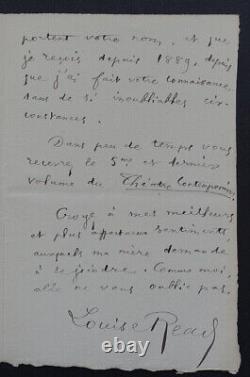 portent votre nom, et que
je reçois depuis 1889, depuis
que j'ai fait votre connaissance,
dans de si inoubliables cir-
constances.
Dans peu de temps vous
recevrez le 5me et dernier
volume du Théâtre Contemporain.
Croyez à mes meilleurs
et plus affectueux sentiments,
auxquels ma mère demande
à se joindre. Comme moi,
elle ne vous oublie pas.
Louise Read